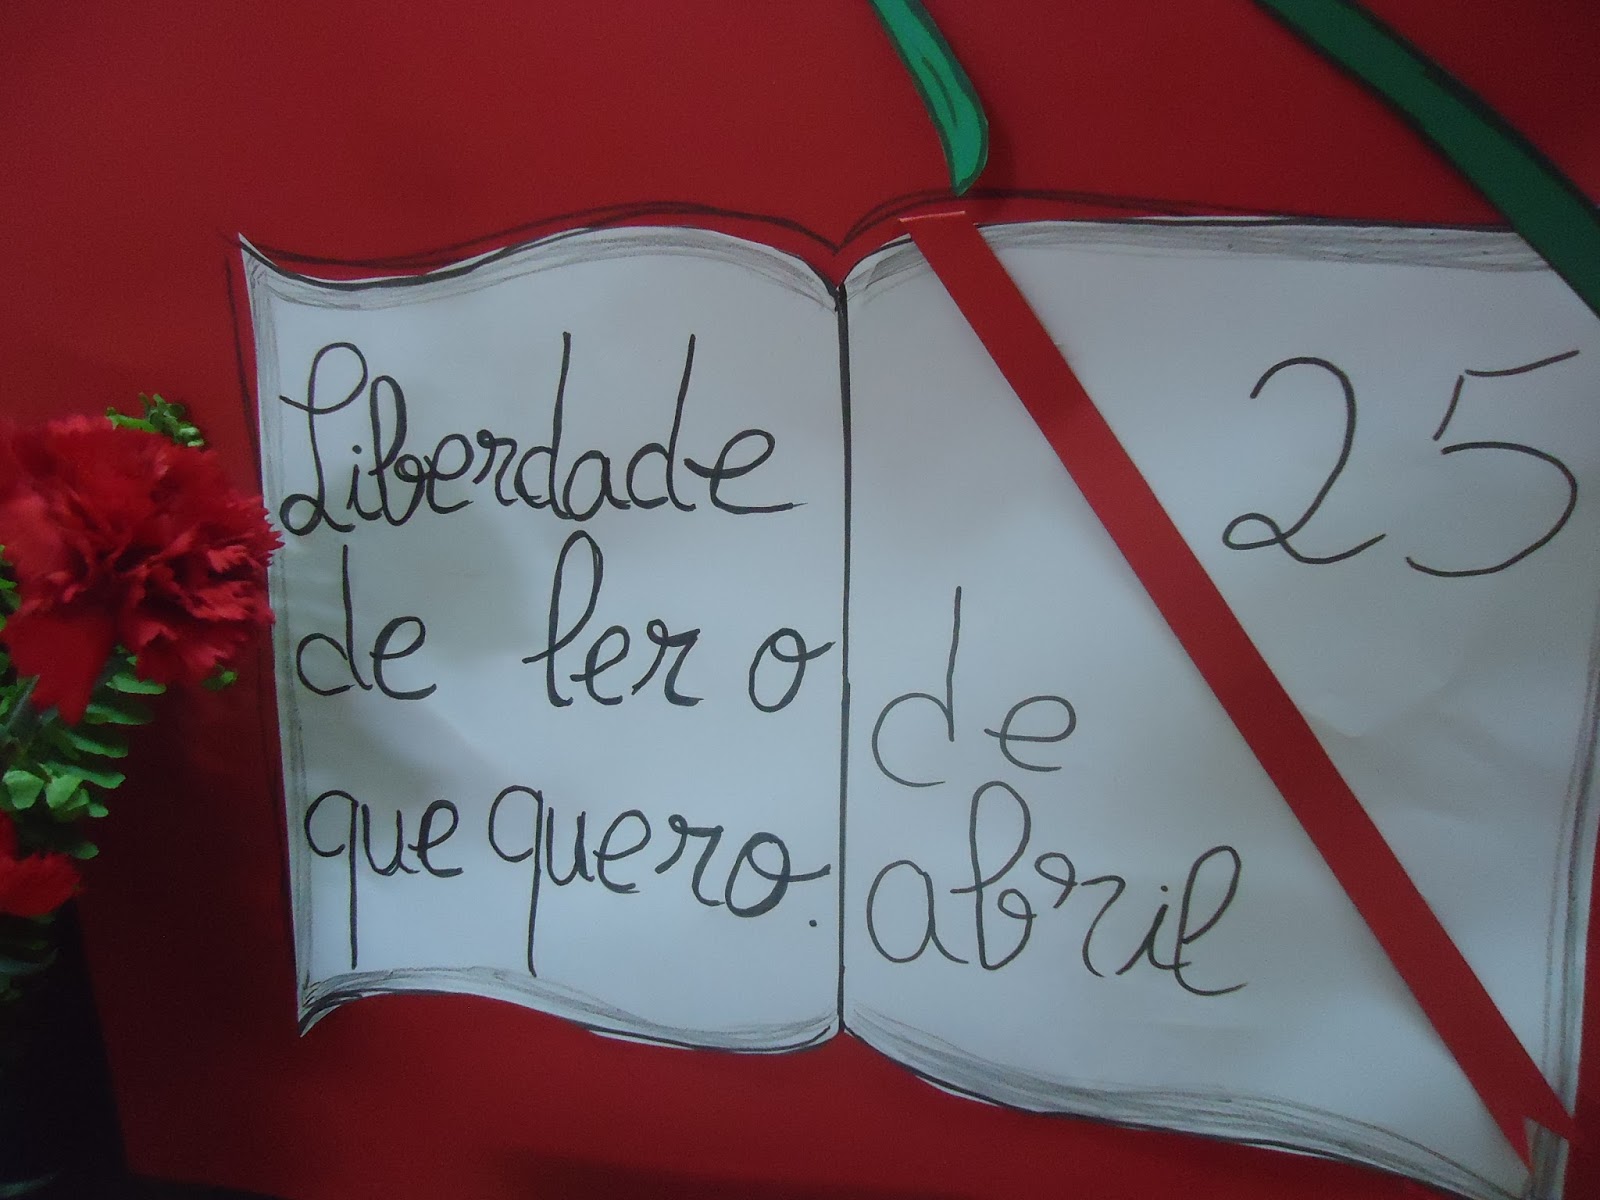 Liberdade
de ler o
que quero.
25
de
abril